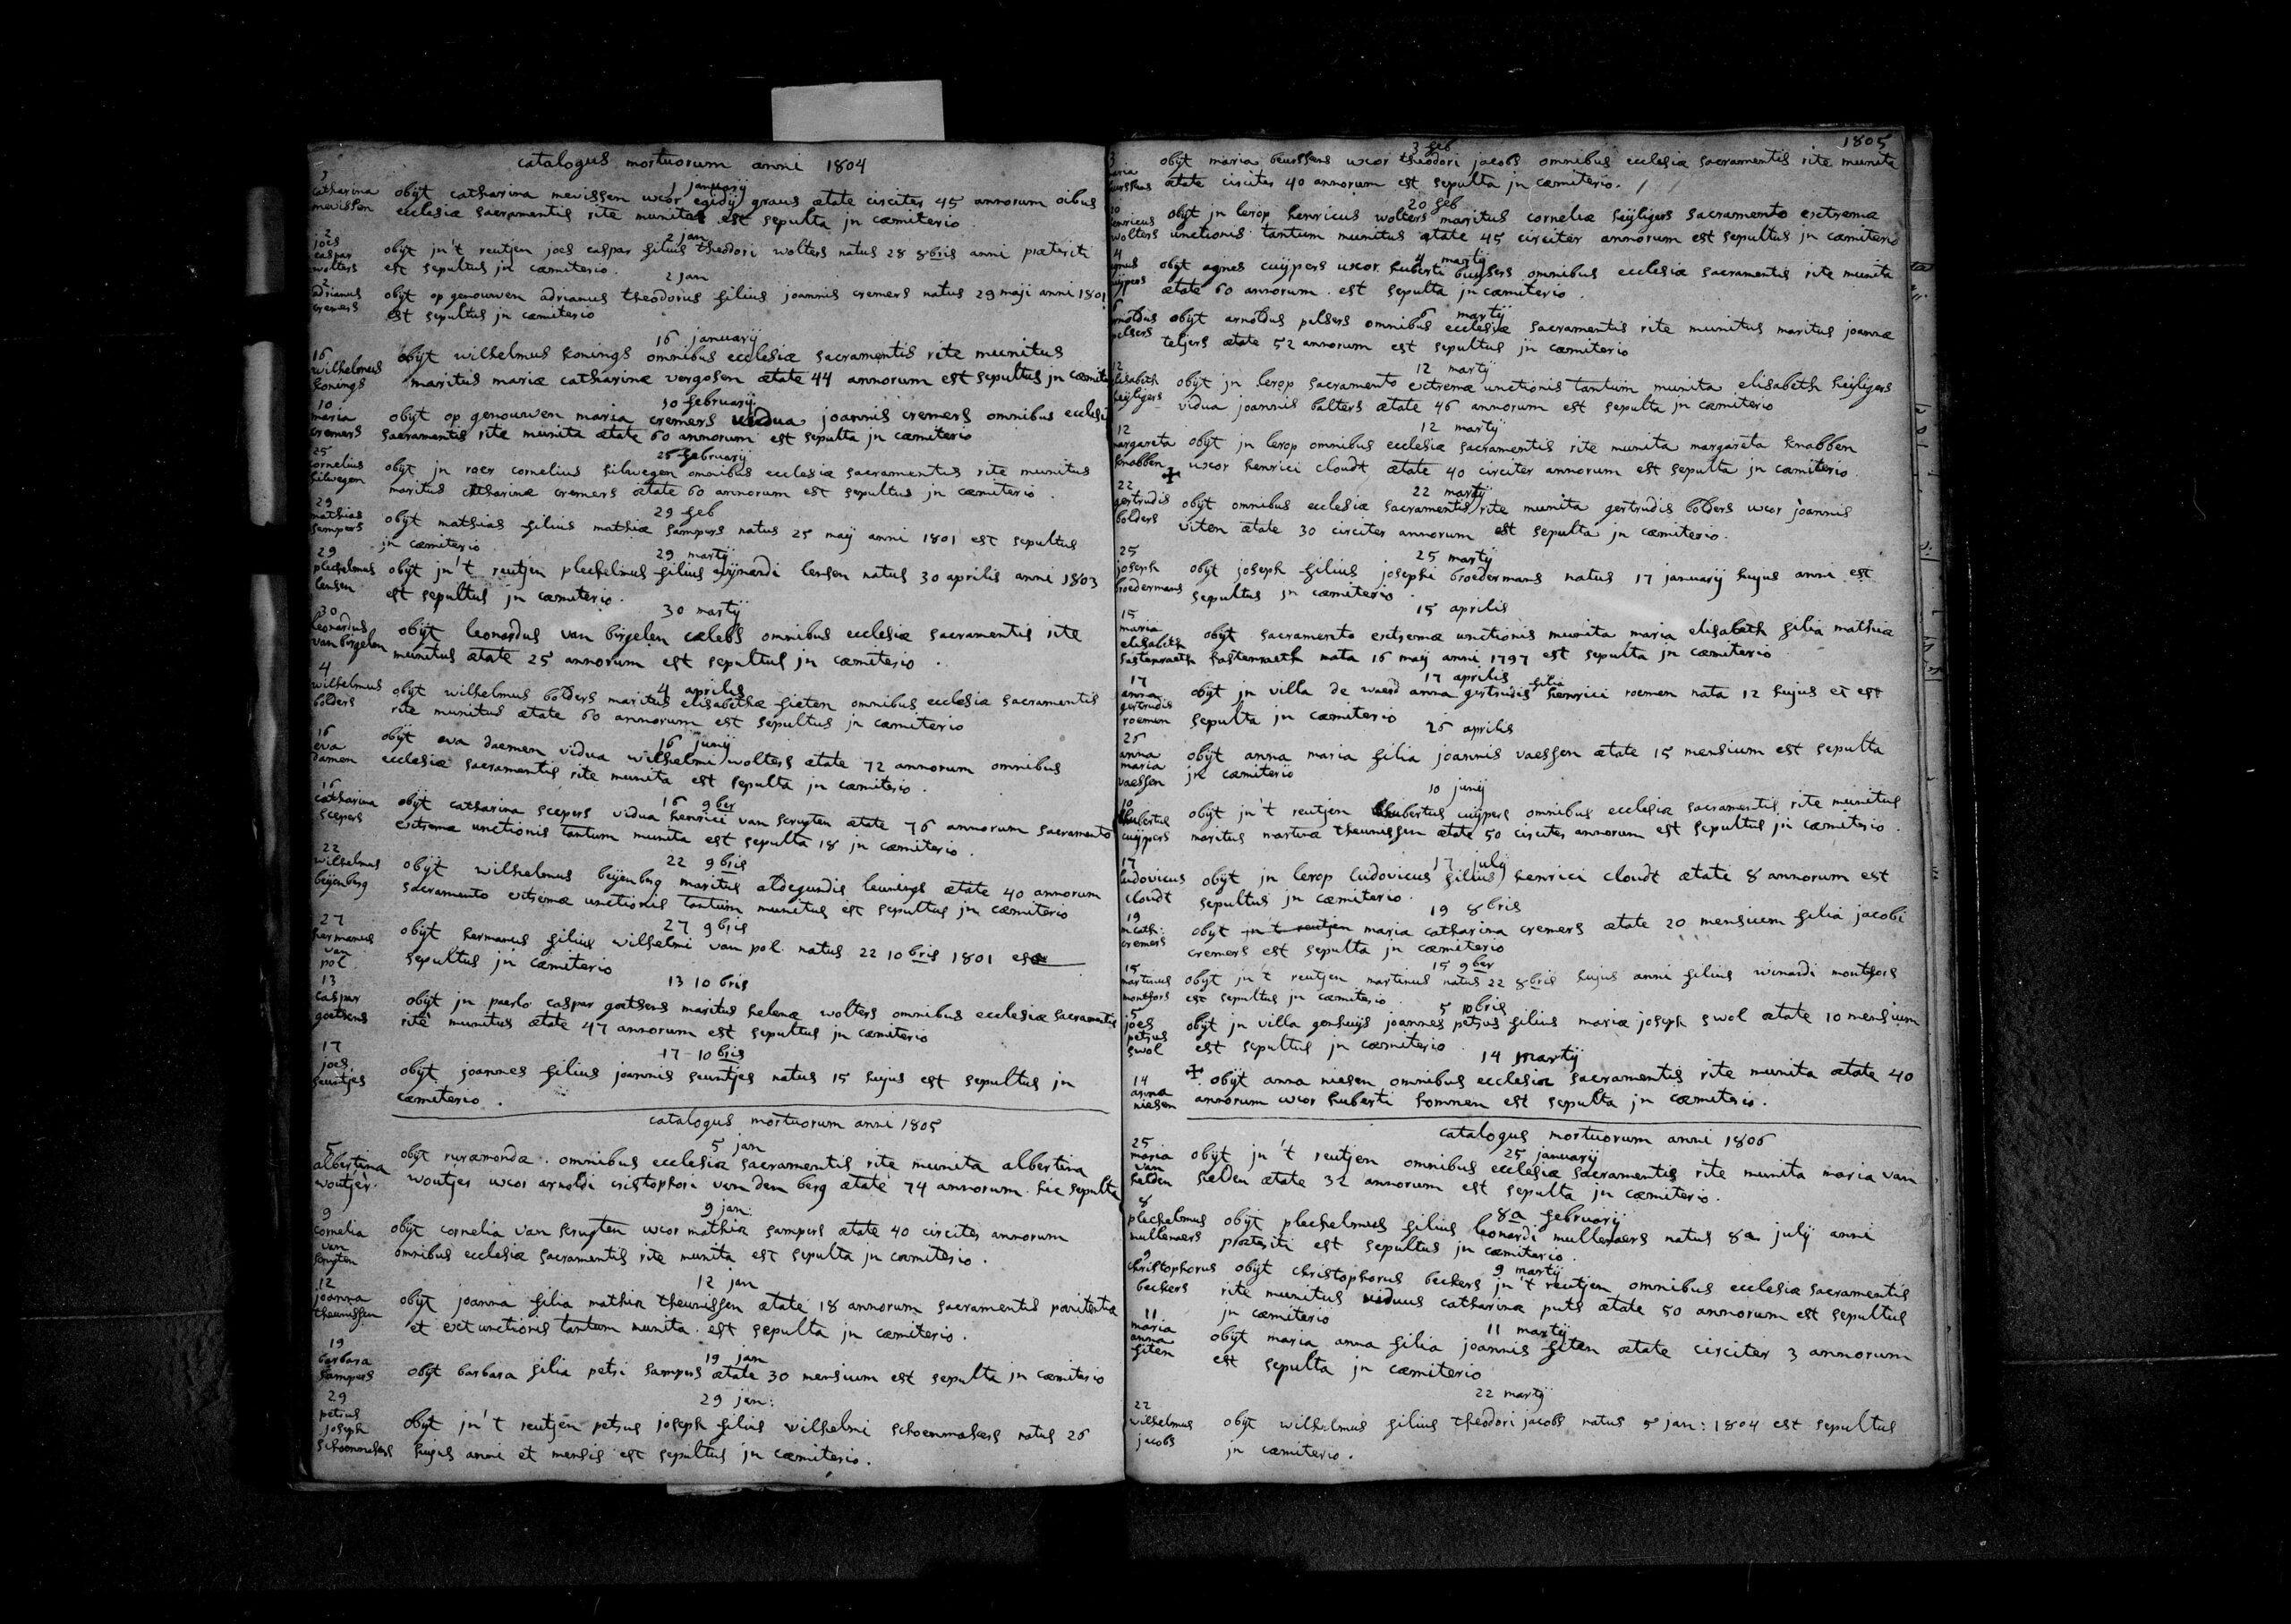 catalogus mortuorum anni 1804
1 januarij
catharina mevissen
obijt catharina mevissen uxor egidij graus ætate circiter 45 annorum oibus
ecclesiæ sacramentis rite munita est sepulta jn cæmiterio
2 jan
2 joes caspar wolters
obijt jn't reutjen joes caspar filius theodori wolters natus 28 8bris anni præteriti
est sepultus jn cæmiterio.
2 jan
2 adrianus cremers
obijt op genouwen adrianus theodorus filius joannis cremers natus 29 maji anni 1801
est sepultus jn cæmiterio
16 januarij
16 wilhelmus konings
obijt wilhelmus konings omnibus ecclesiæ sacramentis rite munitus
maritus mariæ catharinæ vergosen ætate 44 annorum est sepultus jn cæmiterio
10 februarij
10 maria cremers
obijt op genouwen maria cremers vidua joannis cremers omnibus ecclesiæ
sacramentis rite munita ætate 60 annorum est sepulta jn cæmiterio
25 februarij
25 cornelius hilwegen
obijt jn roer cornelius hilwegen omnibus ecclesiæ sacramentis rite munitus
maritus catharinæ cremers ætate 60 annorum est sepultus jn cæmiterio.
29 feb
29 mathias sampers
obijt mathias filius mathiæ sampers natus 25 maij anni 1801 est sepultus
jn cæmiterio
29 martij
29 plechelmus lensen
obijt jn't reutjen plechelmus filius wijnardi lensen natus 30 aprilis anni 1803
est sepultus jn cæmiterio.
30 martij
30 leonardus van birgelen
obijt leonardus van birgelen cælebs omnibus ecclesiæ sacramentis rite
munitus ætate 25 annorum est sepultus jn cæmiterio.
4 aprilis
4 wilhelmus bolders
obijt wilhelmus bolders maritus elisabethæ fieten omnibus ecclesiæ sacramentis
rite munitus ætate 60 annorum est sepultus jn cæmiterio
16 junij
16 eva damen
obijt eva daemen vidua wilhelmi wolters ætate 72 annorum omnibus
ecclesiæ sacramentis rite munita est sepulta jn cæmiterio.
16 9ber
16 catharina scepers
obijt catharina scepers vidua henrici van scruten ætate 76 annorum sacramento
extremæ unctionis tantum munita est sepulta 18 jn cæmiterio.
22 9bris
22 wilhelmus beijenberg
obijt wilhelmus beijenberg maritus aldegundis leunings ætate 40 annorum
sacramento extremæ unctionis tantum munitus est sepultus jn cæmiterio
27 9bris
27 hermanus van pol
obijt hermanus filius wilhelmi van pol natus 22 10bris 1801 est
sepultus jn cæmiterio
13 10bris
13 caspar goetsens
obijt jn paerlo caspar goetsens maritus helenæ wolters omnibus ecclesiæ sacramentis
rite munitus ætate 47 annorum est sepultus jn cæmiterio
17 10bris
17 joes seuntjes
obijt joannes filius joannis seuntjes natus 15 hujus est sepultus jn
cæmiterio.
catalogus mortuorum anni 1805
5 jan
5 albertina woutjer
obijt ruræmondæ. omnibus ecclesiæ sacramentis rite munita albertina
woutjer uxor arnoldi cristophori van den berg ætate 74 annorum hic sepulta
9 jan:
9 cornelia van scruten
obijt cornelia van scruten uxor mathiæ sampers ætate 40 circiter annorum
omnibus ecclesiæ sacramentis rite munita est sepulta jn cæmiterio.
12 jan
12 joanna theunissen
obijt joanna filia mathiæ theunissen ætate 18 annorum sacramentis pænitentiæ
et ext unctionis tantum munita. est sepulta jn cæmiterio.
19 jan
19 barbara sampers
obijt barbara filia petri sampers ætate 30 mensium est sepulta jn cæmiterio
29 jan:
29 petrus joseph schoenmakers
obijt jn't reutjen petrus joseph filius wilhelmi schoenmakers natus 26
hujus anni et mensis est sepultus jn cæmiterio.
1805
3 feb
3 maria beurskens
obijt maria beurskens uxor theodori jacobs omnibus ecclesiæ sacramentis rite munita
ætate circiter 40 annorum est sepulta jn cæmiterio.
20 feb
20 henricus wolters
obijt jn lerop henricus wolters maritus corneliæ heijligers sacramento extremæ
unctionis tantum munitus ætate 45 circiter annorum est sepultus jn cæmiterio
4 martij
4 agnes cuijpers
obijt agnes cuijpers uxor huberti buijsers omnibus ecclesiæ sacramentis rite munita
ætate 60 annorum. est sepulta jn cæmiterio.
6 martij
6 arnoldus pelsers
obijt arnoldus pelsers omnibus ecclesiæ sacramentis rite munitus maritus joannæ
teljers ætate 52 annorum est sepultus jn cæmiterio
12 martij
12 elisabeth heijligers
obijt jn lerop sacramento extremæ unctionis tantum munita elisabeth heijligers
vidua joannis balters ætate 46 annorum est sepulta jn cæmiterio
12 martij
12 margareta knabben
obijt jn lerop omnibus ecclesiæ sacramentis rite munita margareta knabben
uxor henrici cloudt ætate 40 circiter annorum est sepulta jn cæmiterio.
22 martij
22 gertrudis bolders
obijt omnibus ecclesiæ sacramentis rite munita gertrudis bolders uxor joannis
viten ætate 30 circiter annorum est sepulta jn cæmiterio.
25 martij
25 joseph broedermans
obijt joseph filius josephi broedermans natus 17 januarij hujus anni est
sepultus jn cæmiterio.
15 aprilis
15 maria elisabeth hastenraeth
obijt sacramento extremæ unctionis munita maria elisabeth filia mathiæ
hastenraeth nata 16 maij anni 1797 est sepulta jn cæmiterio
17 aprilis
17 anna gertrudis roemen
obijt jn villa de waerd anna gertrudis filia henrici roemen nata 12 hujus et est
sepulta jn cæmiterio
26 aprilis
26 anna maria vaessen
obijt anna maria filia joannis vaessen ætate 15 mensium est sepulta
jn cæmiterio
10 junij
10 hubertus cuijpers
obijt jn't reutjen hubertus cuijpers omnibus ecclesiæ sacramentis rite munitus
maritus martinæ theunissen ætate 50 circiter annorum est sepultus jn cæmiterio.
17 julij
17 ludovicus cloudt
obijt jn lerop ludovicus filius henrici cloudt ætate 8 annorum est
sepultus jn cæmiterio.
19 8bris
19 m cath: cremers
obijt jn't reutjen maria catharina cremers ætate 20 mensium filia jacobi
cremers est sepulta jn cæmiterio
15 9ber
15 martinus montfors
obijt jn't reutjen martinus natus 22 8bris hujus anni filius winardi montfors
est sepultus jn cæmiterio.
5 10bris
5 joes petrus swol
obijt jn villa genhuijs joannes petrus filius mariæ joseph swol ætate 10 mensium
est sepultus jn cæmiterio.
14 martij
14 anna niesen
obijt anna niesen omnibus ecclesiæ sacramentis rite munita ætate 40
annorum uxor huberti homnen est sepulta jn cæmiterio.
catalogus mortuorum anni 1806
25 januarij
25 maria van helden
obijt jn't reutjen omnibus ecclesiæ sacramentis rite munita maria van
helden ætate 32 annorum est sepulta jn cæmiterio.
8a februarij
8 plechelmus mullenaers
obijt plechelmus filius leonardi mullenaers natus 8a julij anni
præteriti est sepultus jn cæmiterio.
9 martij
9 christophorus beckers
obijt christophorus beckers jn't reutjen omnibus ecclesiæ sacramentis
rite munitus viduus catharinæ puts ætate 50 annorum est sepultus
jn cæmiterio
11 martij
11 maria anna fiten
obijt maria anna filia joannis fiten ætate circiter 3 annorum
est sepulta jn cæmiterio
22 martij
22 wilhelmus jacobs
obijt wilhelmus filius theodori jacobs natus 5 jan: 1804 est sepultus
jn cæmiterio.